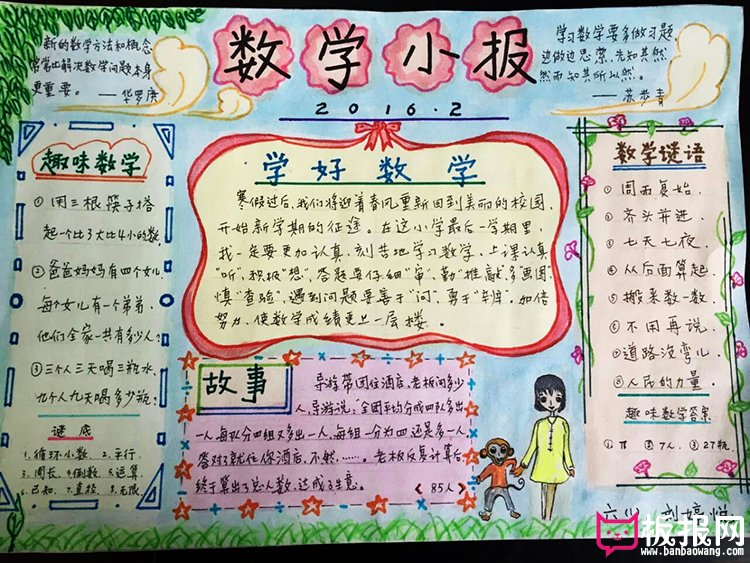 数学小报
2016.2
新的数学方法和概念
常常比解决数学问题本身
更重要。——华罗庚
学习数学要多做习题，
边做边思索，先知其然，
然而知其所以然。
——苏步青
趣味数学
①用三根筷子搭
起一个比3大比4小的数
②爸爸妈妈有四个女儿
每个女儿有一个弟弟，
他们全家一共有多少人？
③三个人三天喝三瓶水，
九个人九天喝多少瓶？
谜底
1.循环小数 2.平行.
3.周长.4.倒数.5.运算
6.已知.7.直径.8.无限
学好数学
寒假过后，我们将迎着春风重新回到美丽的校园，
开始新学期的征途。在这小学最后一学期里，
我一定要更加认真、刻苦地学习数学，上课认真
"听"、积极"想"、答题要仔细"审"、勤"推敲"、多"画图"
慎"查验"，遇到问题要善于"问"、勇于"辩"，加倍
努力，使数学成绩更上一层楼。
故事
导游带团住酒店，老板问多少
人，导游说："全团平均分成四队多出
一人，每队分四组又多出一人，每组一分为四还是多一人
答对了就住你酒店，不然……。老板反复计算后
终于算出了总人数，达成了生意。
《85人》
数学谜语
①周而复始.
②齐头并进.
③七天七夜.
④从后面算起.
⑤搬来数一数.
⑥不用再说.
⑦道路没弯儿.
⑧人民的力量.
趣味数学答案
①π ②7人. ③27瓶.
板报网
www.banbaowang.com